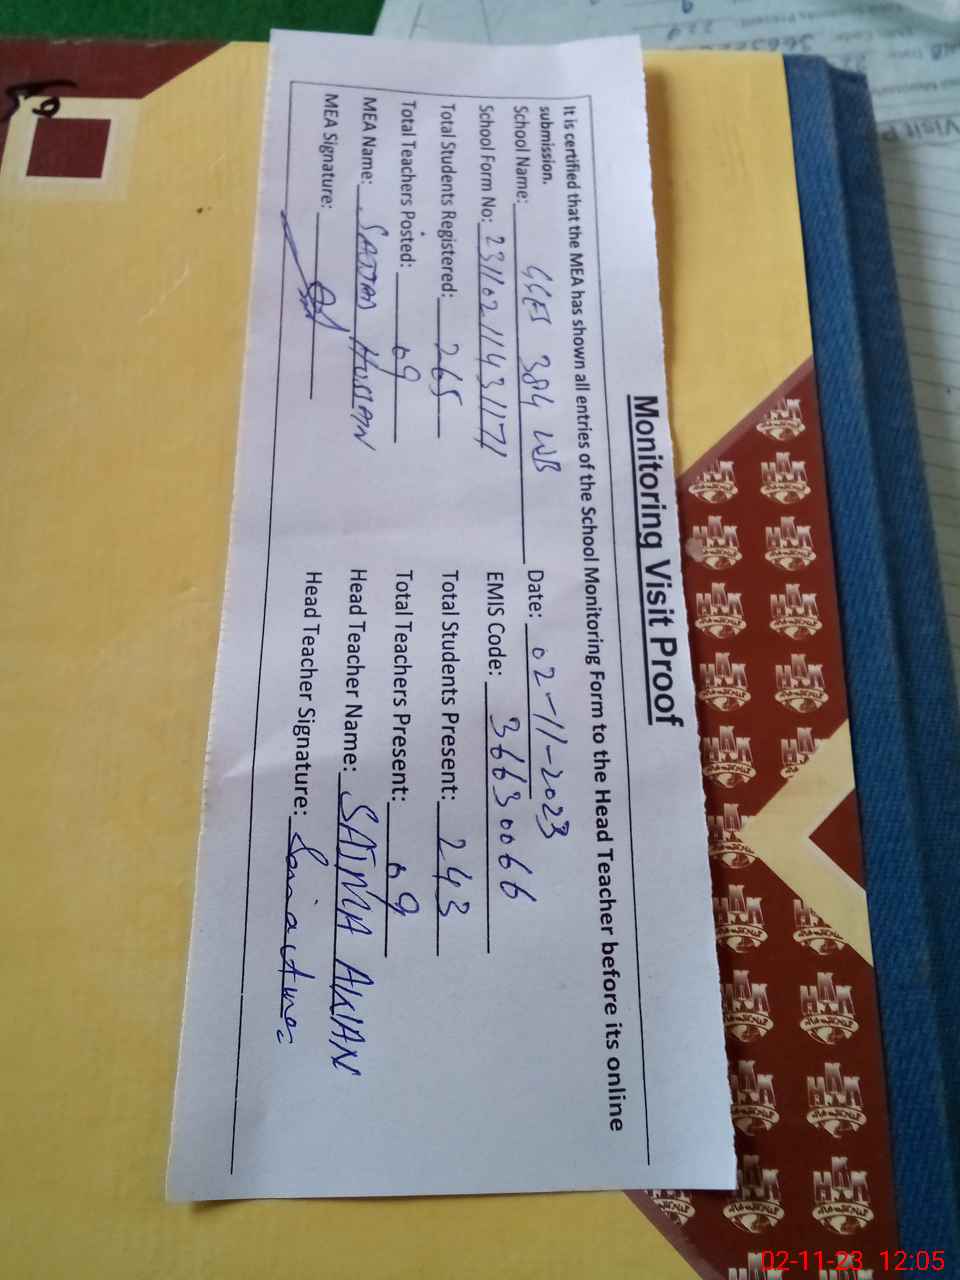 Monitoring Visit Proof
It is certified that the MEA has shown all entries of the School Monitoring Form to the Head Teacher before its online
submission.
School Name: GGES 384 WB Date: 02-11-2023
School Form No: 231102114311171 EMIS Code: 36630066
Total Students Registered: 265 Total Students Present: 243
Total Teachers Posted: 09 Total Teachers Present: 09
MEA Name: SAJJAD HUSSAIN Head Teacher Name: SAIMA
MEA Signature: Head Teacher Signature:
02-11-23 12:05